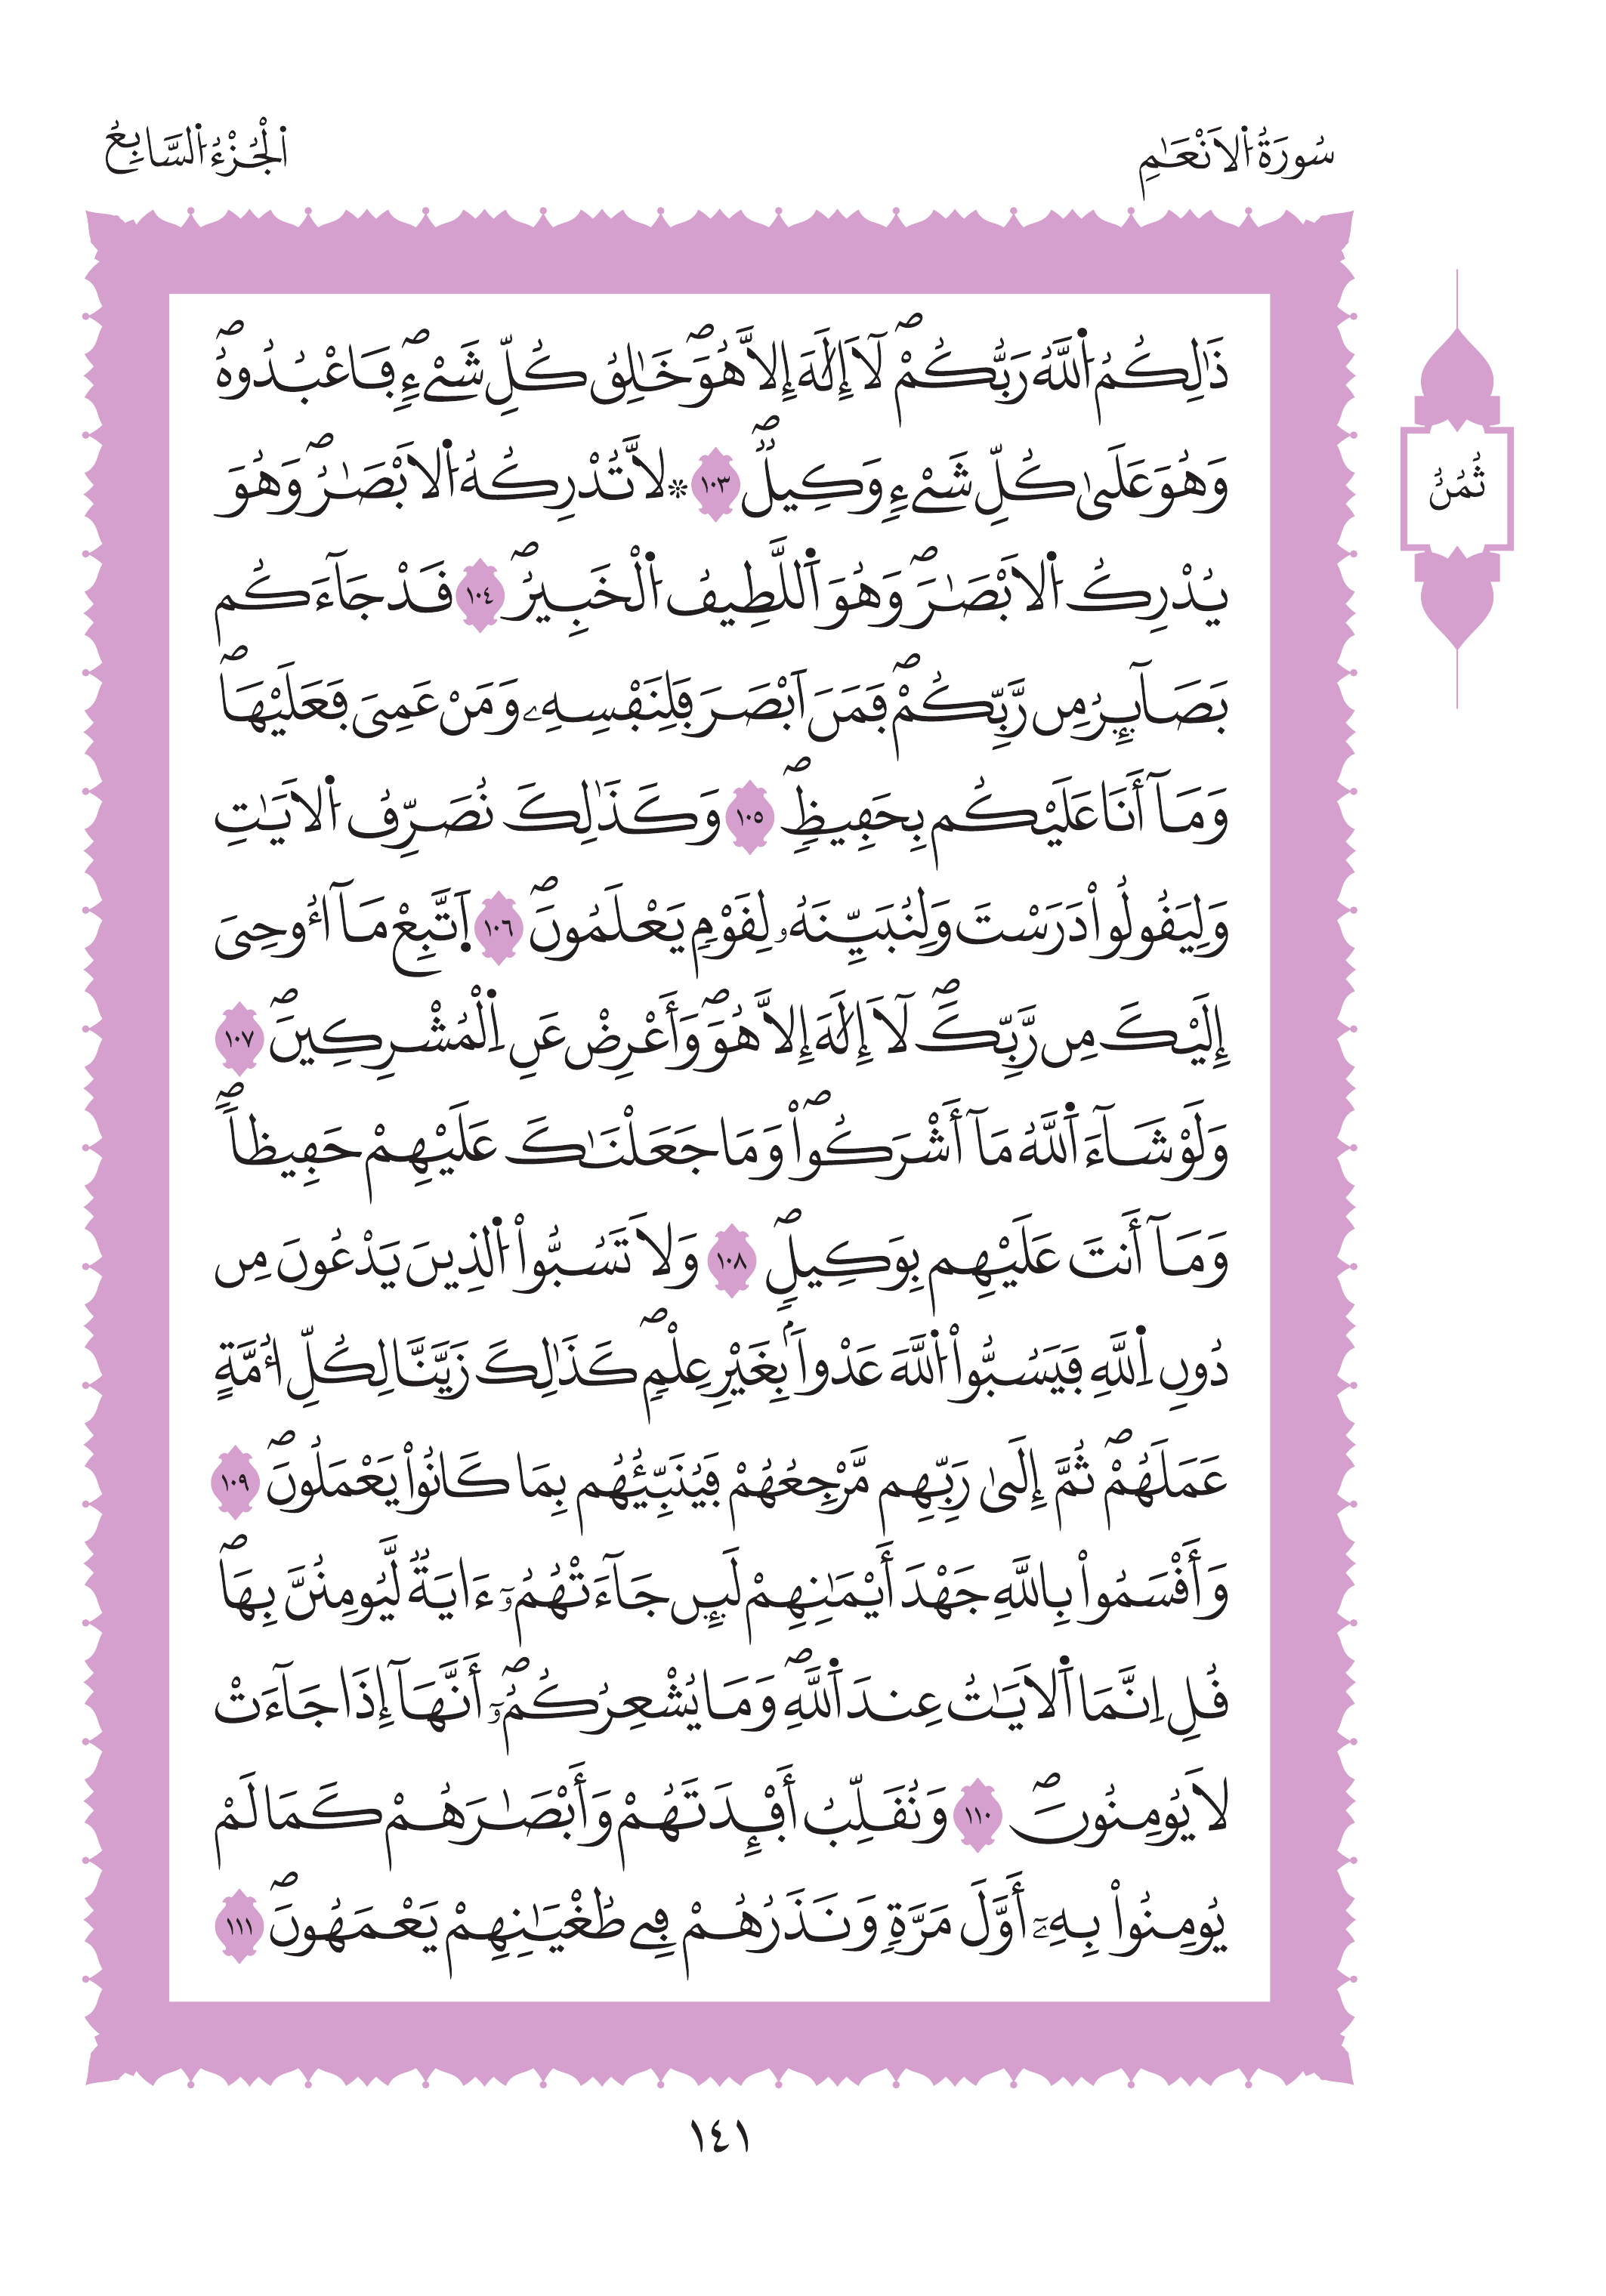 سُورَةُ اُ۬لَانْعَٰمِ
اَ۬لْجُزْءُ اُ۬لسَّابِعُ
ثُمُنٌ
ذَٰلِكُمُ اُ۬للَّهُ رَبُّكُمْۖ لَآ إِلَٰهَ إِلَّا هُوَۖ خَٰلِقُ كُلِّ شَےْءٖۖ فَاعْبُدُوهُۖ
وَهُوَ عَلَىٰ كُلِّ شَےْءٖ وَكِيلٞۖ ١٠٣ ۞ لَّا تُدْرِكُهُ اُ۬لَابْصَٰرُۖ وَهُوَ
يُدْرِكُ اُ۬لَابْصَٰرَۖ وَهُوَ اَ۬للَّطِيفُ اُ۬لْخَبِيرُۖ ١٠٤ قَدْ جَآءَكُم
بَصَآئِرُ مِن رَّبِّكُمْۖ فَمَنَ اَبْصَرَ فَلِنَفْسِهِۦ وَمَنْ عَمِيَ فَعَلَيْهَاۖ
وَمَآ أَنَا عَلَيْكُم بِحَفِيظٖۖ ١٠٥ وَكَذَٰلِكَ نُصَرِّفُ اُ۬لَايَٰتِ
وَلِيَقُولُواْ دَرَسْتَ وَلِنُبَيِّنَهُۥ لِقَوْمٖ يَعْلَمُونَۖ ١٠٦ اَ۪تَّبِعْ مَآ أُوحِيَ
إِلَيْكَ مِن رَّبِّكَۖ لَآ إِلَٰهَ إِلَّا هُوَۖ وَأَعْرِضْ عَنِ اِ۬لْمُشْرِكِينَۖ ١٠٧
وَلَوْ شَآءَ اَ۬للَّهُ مَآ أَشْرَكُواْۖ وَمَا جَعَلْنَٰكَ عَلَيْهِمْ حَفِيظاٗۖ
وَمَآ أَنتَ عَلَيْهِم بِوَكِيلٖۖ ١٠٨ وَلَا تَسُبُّواْ اُ۬لذِينَ يَدْعُونَ مِن
دُونِ اِ۬للَّهِ فَيَسُبُّواْ اُ۬للَّهَ عَدْواَۢ بِغَيْرِ عِلْمٖۖ كَذَٰلِكَ زَيَّنَّا لِكُلِّ أُمَّةٍ
عَمَلَهُمْۖ ثُمَّ إِلَىٰ رَبِّهِم مَّرْجِعُهُمْ فَيُنَبِّئُهُم بِمَا كَانُواْ يَعْمَلُونَۖ ١٠٩
وَأَقْسَمُواْ بِاللَّهِ جَهْدَ أَيْمَٰنِهِمْ لَئِن جَآءَتْهُمُۥٓ ءَايَةٞ لَّيُومِنُنَّ بِهَاۖ
قُلِ اِنَّمَا اَ۬لَايَٰتُ عِندَ اَ۬للَّهِۖ وَمَا يُشْعِرُكُمُۥٓۖ أَنَّهَآ إِذَا جَآءَتْ
لَا يُومِنُونَۖ ١١٠ وَنُقَلِّبُ أَفْـِٕدَتَهُمْ وَأَبْصَٰرَهُمْ كَمَا لَمْ
يُومِنُواْ بِهِۦٓ أَوَّلَ مَرَّةٖ وَنَذَرُهُمْ فِے طُغْيَٰنِهِمْ يَعْمَهُونَۖ ١١١
١٤١